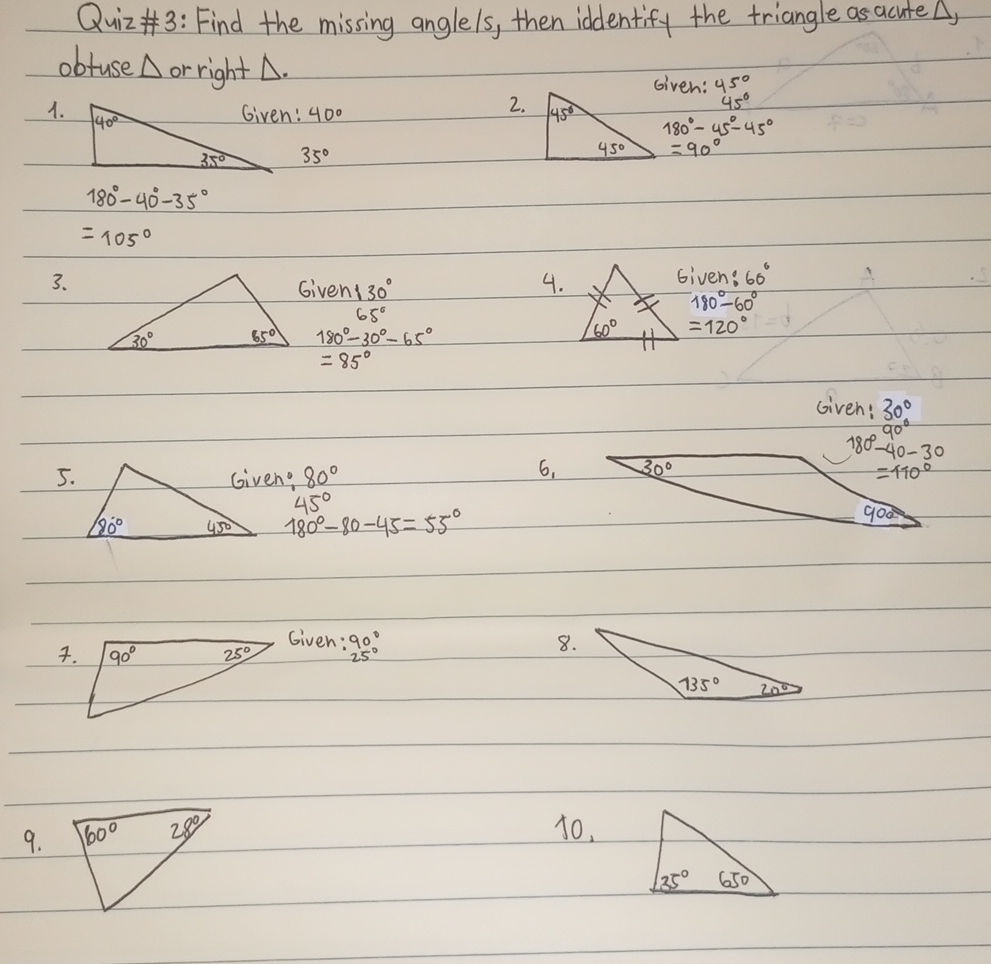 Quiz #3: Find the missing angle/s, then iddentify the triangle as acute Δ,
obtuse Δ or right Δ.
1.
40°
35°
Given: 40°
35°
180°-40°-35°
= 105°
2.
45°
45°
Given: 45°
45°
180°-45°-45°
= 90°
3.
30°
65°
Given: 30°
65°
180°-30°-65°
= 85°
4.
60°
Given: 60°
180°-60°
= 120°
5.
80°
45°
Given: 80°
45°
180°-80-45=55°
6.
30°
90°
Given: 30°
90°
180°-40-30
=110°
7.
90°
25°
Given: 90°
25°
8.
135°
20°
9.
60°
28°
10.
35°
65°